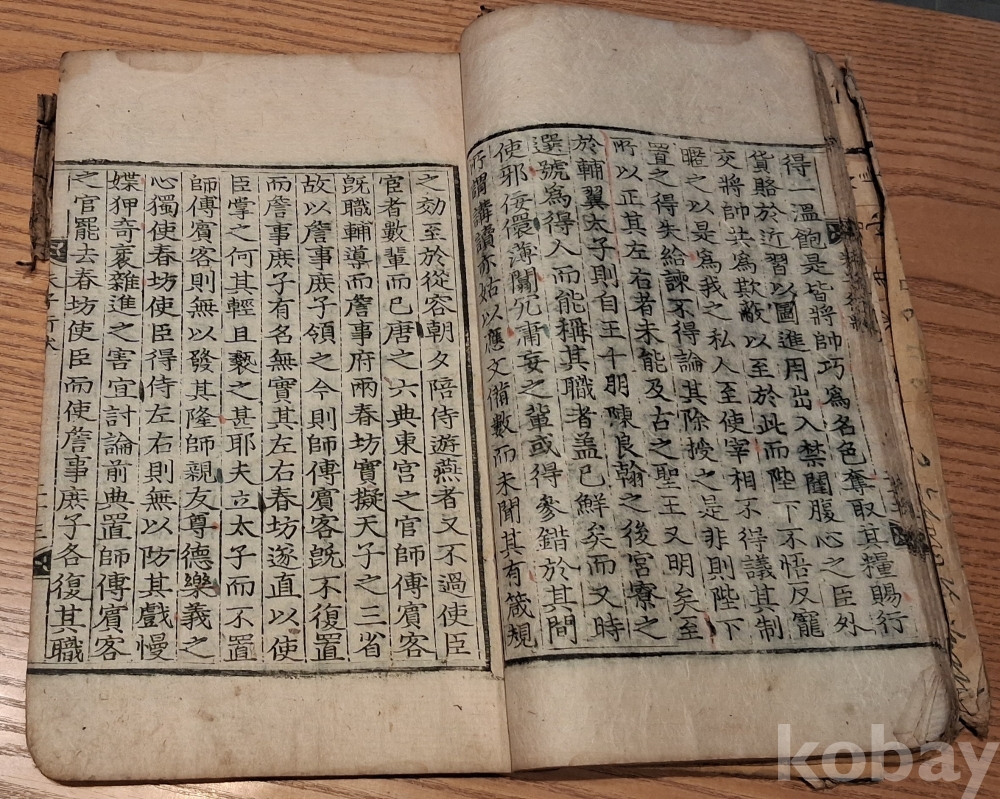 得一溫飽是皆將帥巧爲名色奪取其糧賜行
貨賂於近習以圖進用出入禁闥腹心之臣外
交將帥共爲欺敝以至於此而陛下不悟反寵
暱之以是爲我之私人至使宰相不得議其制
置之得失給諫不得論其除授之是非則陛下
所以正其左右者未能及古之聖王又明矣至
於輔翼太子則自王十朋陳良翰之後宮寮之
選號爲得人而能稱其職者盖已鮮矣而又時
使邪佞儇薄闒冗庸妄之輩或得參錯於其間
所謂講讀亦姑以應文俻數而未聞其有箴規
之効至於從容朝夕陪侍遊燕者又不過使臣
宦者數輩而已唐之六典東宮之官師傅賓客
旣職輔導而詹事府兩春坊實擬天子之三省
故以詹事庶子領之今則師傅賓客旣不復置
而詹事庶子有名無實其左右春坊遂直以使
臣掌之何其輕且褻之甚耶夫立太子而不置
師傅賓客則無以發其隆師親友尊德樂義之
心獨使春坊使臣得侍左右則無以防其戲慢
媟狎奇袤雜進之害宜討論前典置師傅賓客
之官罷去春坊使臣而使詹事庶子各復其職
朱子行狀
kobay